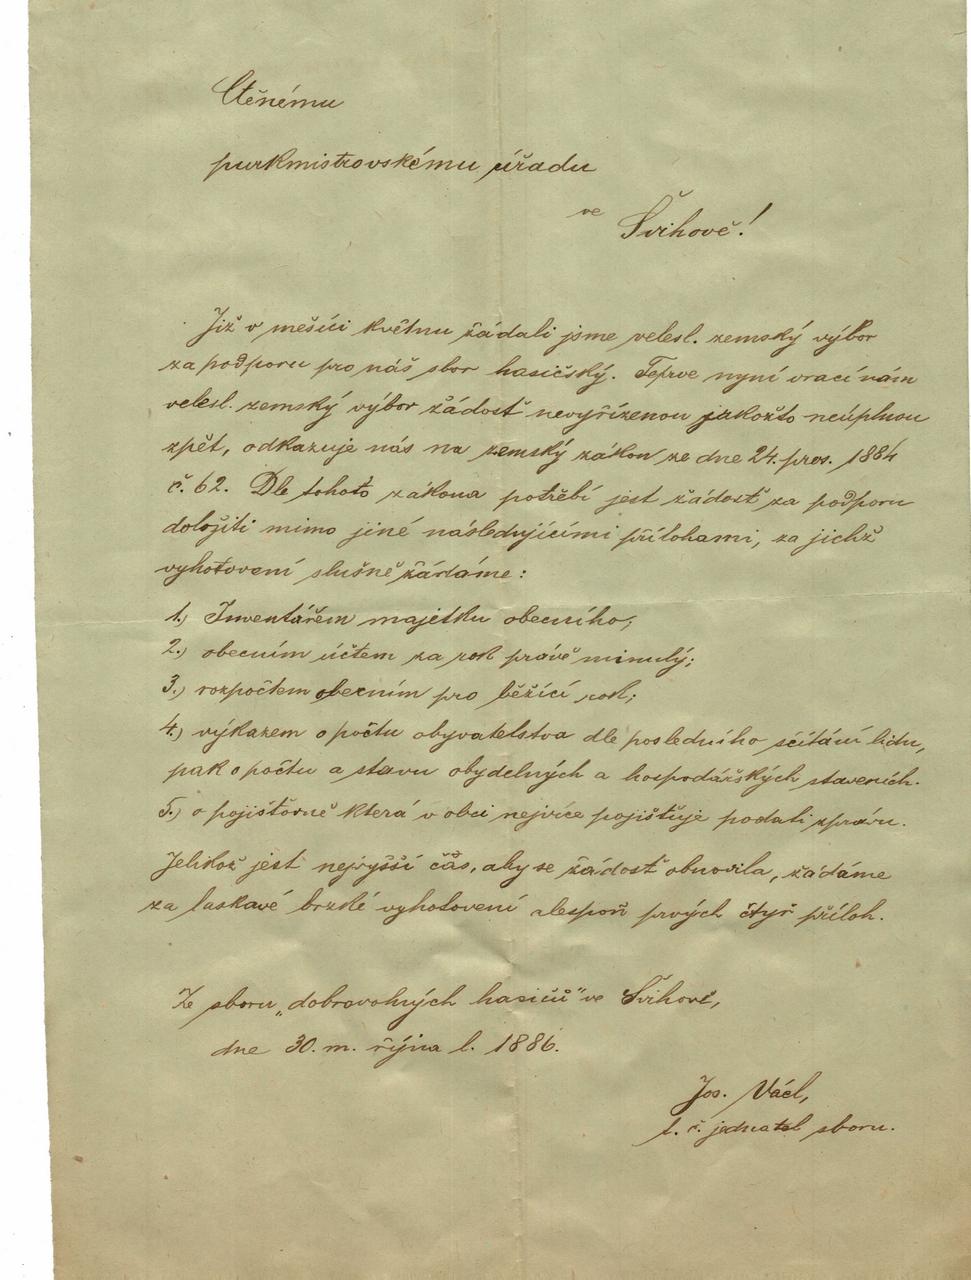 Ctěnému
purkmistrovskému úřadu
ve Švihově!
Již v mešíci květnu žádali jsme velesl. zemský výbor
za podporu pro náš sbor hasičský. Teprve nyní vrací nám
velesl. zemský výbor žádosť nevyřízenou jakožto neúplnou
zpět, odkazuje nás na zemský zákon ze dne 24. pros. 1884
č. 62. Dle tohoto zákona potřebí jest žádosť za podporu
doložiti mimo jiné následujícími přílohami, za jichž
vyhotovení slušně žádáme:
1.) Inventářem majetku obecního;
2.) obecním účtem za rok právě minulý;
3.) rozpočtem obecním pro běžící rok;
4.) výkazem o počtu obyvatelstva dle posledního sčítání lidu,
pak o počtu a stavu obydelných a hospodářských staveních.
5.) o pojišťovně která v obci nejvíce pojišťuje podati zprávu.
Jelikož jest nejvyšší čas, aby se žádosť obnovila, žádáme
za laskavé brzké vyhotovení alespoň prvých čtyř příloh.
Ze sboru „dobrovolných hasičů" ve Švihově,
dne 30. m. října l. 1886.
Jos. Václ,
t. č. jednatel sboru.